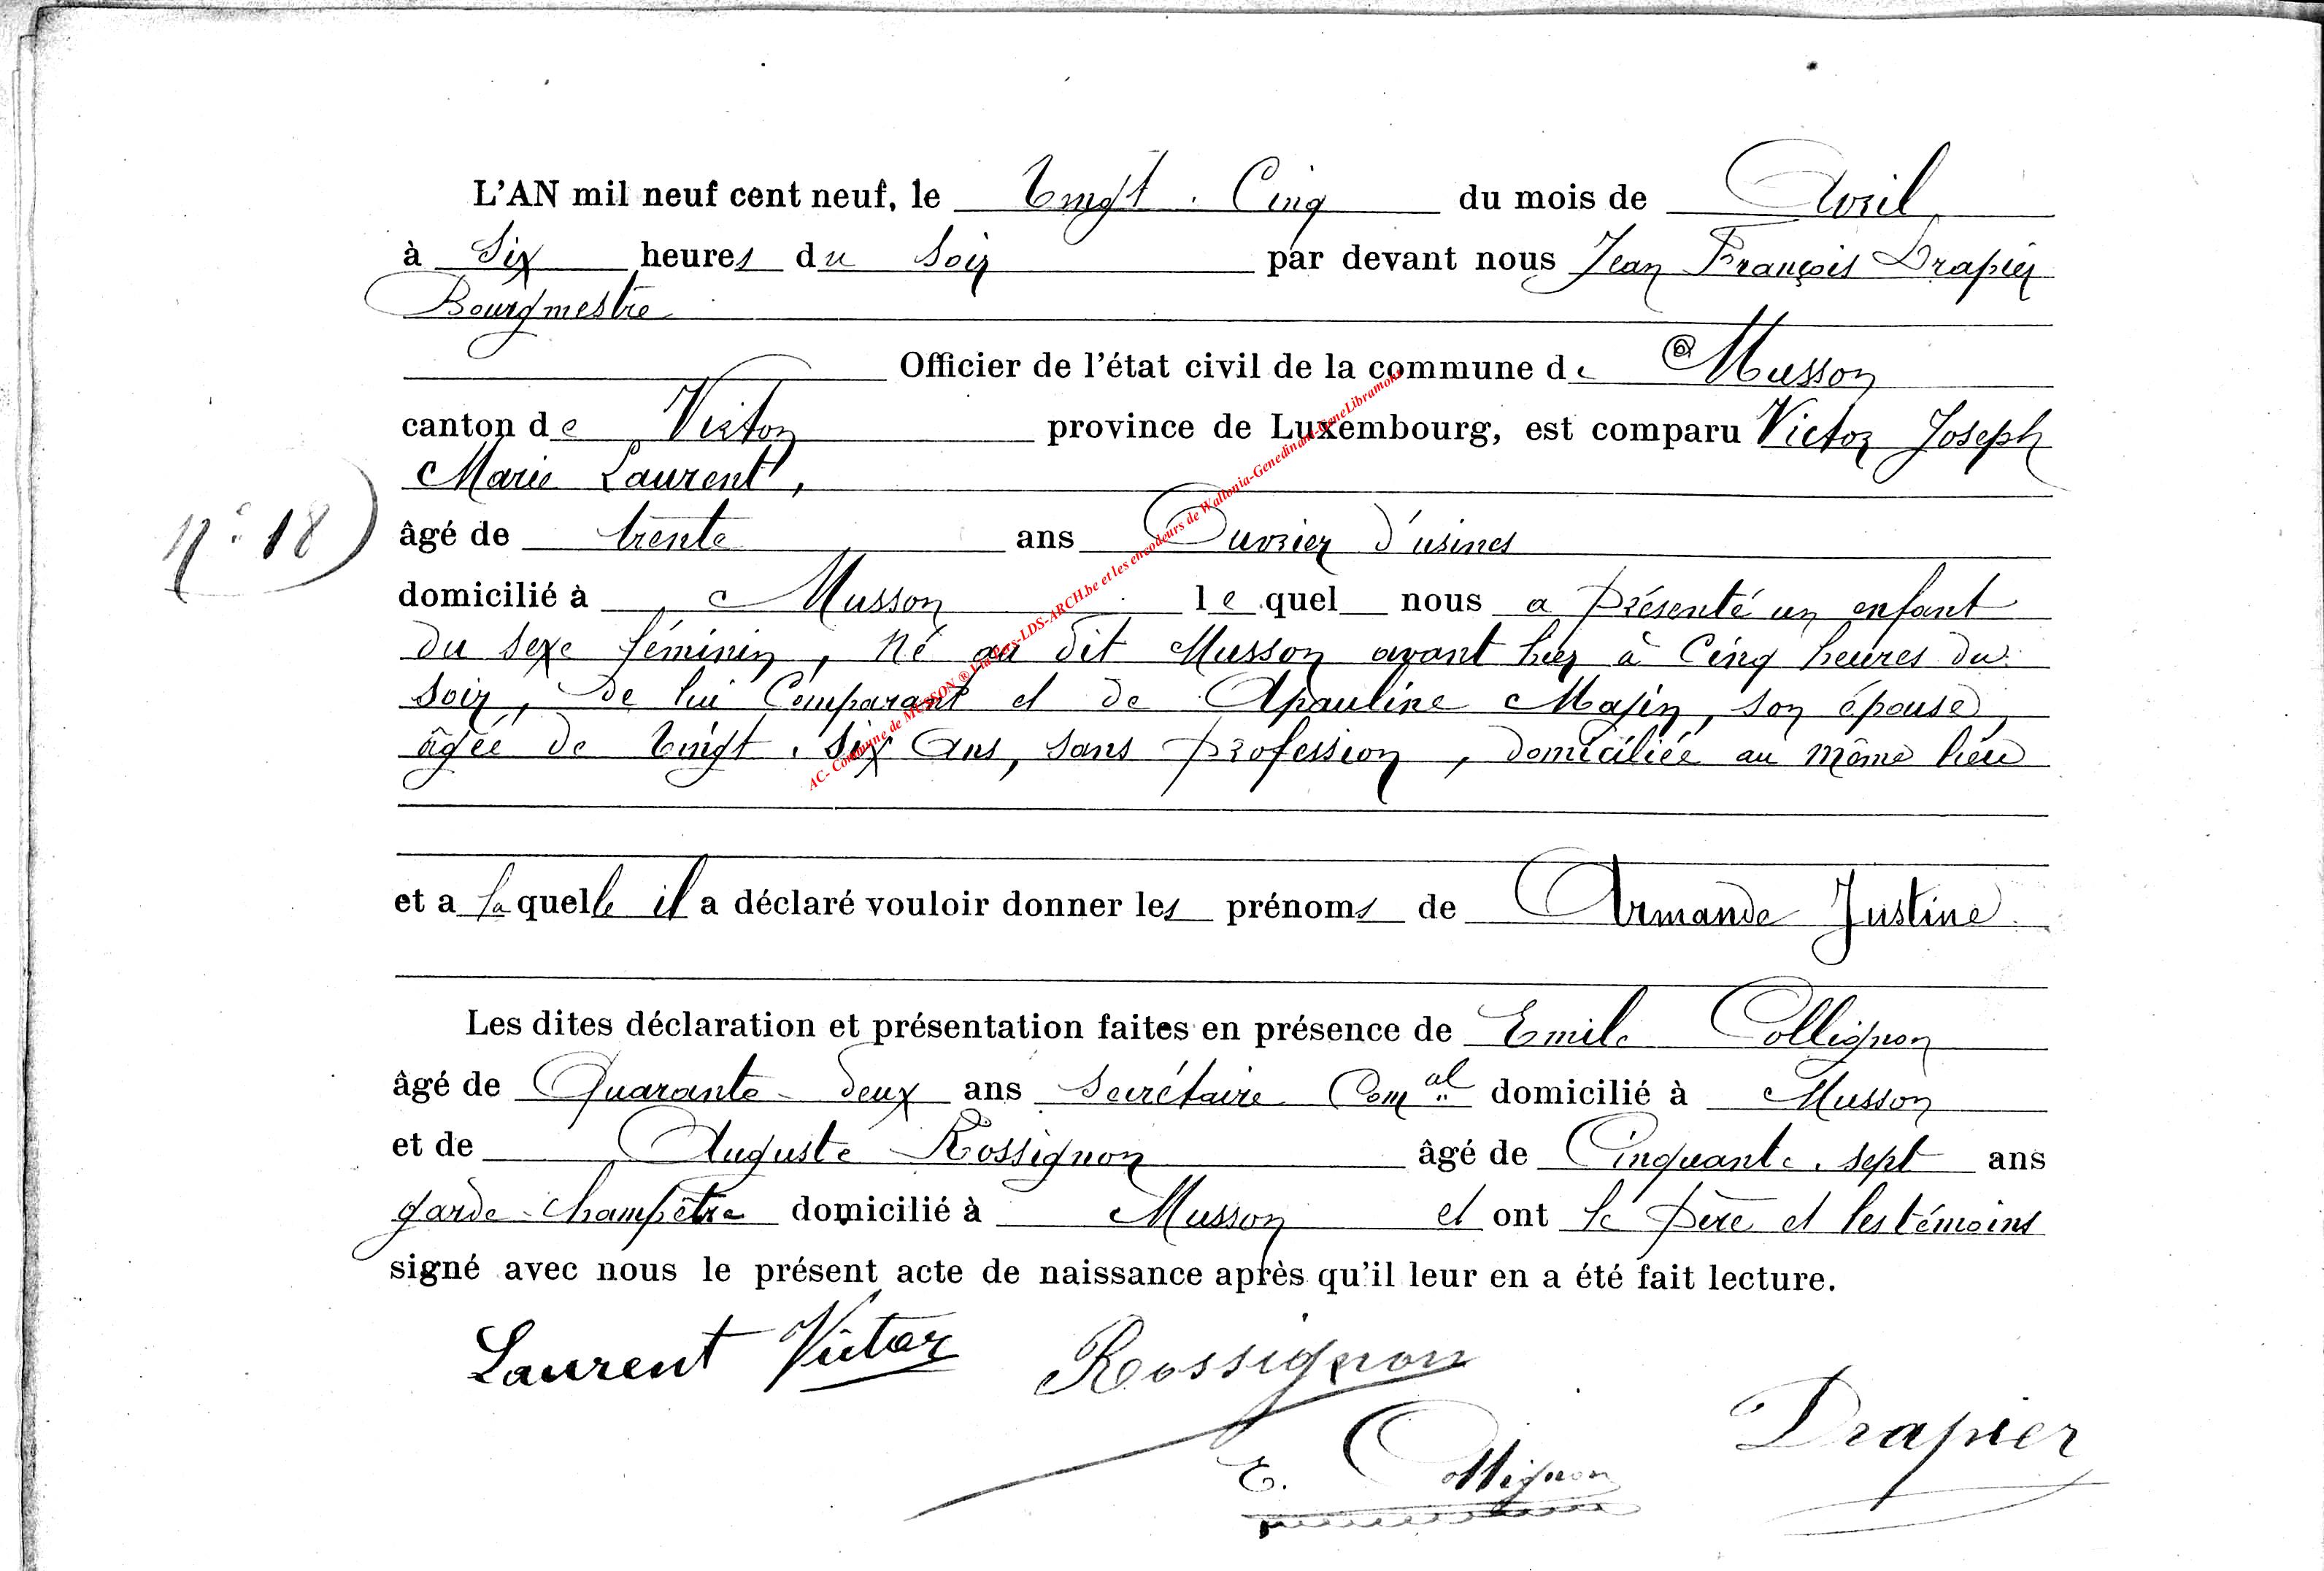 L'AN mil neuf cent neuf, le Vingt-Cinq du mois de Avril
à Six heures du Soir par devant nous Jean François Drapier
Bourgmestre
Officier de l'état civil de la commune de Musson
canton de Virton province de Luxembourg, est comparu Victor Joseph
Marie Laurent,
N° 18
âgé de trente ans Ouvrier d'usines
domicilié à Musson lequel nous a présenté un enfant
du sexe féminin, né au dit Musson avant hier à Cinq heures du
soir, de lui Comparant et de Apauline Majin, son épouse,
âgée de Vingt-Six Ans, sans profession, domiciliée au même lieu
et a laquelle il a déclaré vouloir donner les prénoms de Armande Justine
Les dites déclaration et présentation faites en présence de Emile Collignon
âgé de Quarante-deux ans Secrétaire Comal domicilié à Musson
et de Auguste Rossignon âgé de Cinquante-sept ans
garde-champêtre domicilié à Musson et ont le père et les témoins
signé avec nous le présent acte de naissance après qu'il leur en a été fait lecture.
Laurent Victor Rossignon
E. Collignon Drapier
AC- Commune de MUSSON ® Via Fays-LDS-ARCH.be et les encodeurs de Wallonia-Genedinant-GeneLibramont